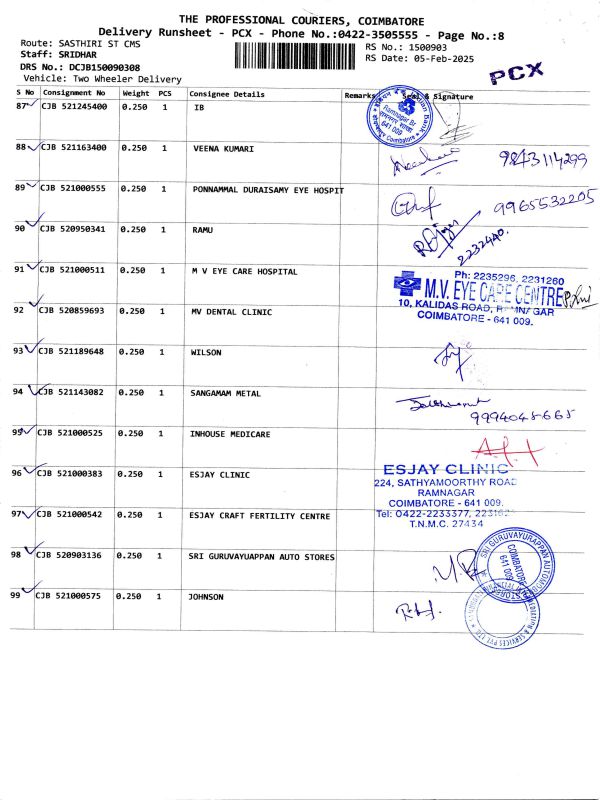 THE PROFESSIONAL COURIERS, COIMBATORE
Delivery Runsheet - PCX - Phone No.:0422-3505555 - Page No.:8
Route: SASTHIRI ST CMS
Staff: SRIDHAR
DRS No.: DCJB150090308
Vehicle: Two Wheeler Delivery
RS No.: 1500903
RS Date: 05-Feb-2025
PCX
S No Consignment No Weight PCS Consignee Details Remarks Seal & Signature
87 CJB 521245400 0.250 1 IB
Indian Bank
Ramnagar Br
641 009
Coimbatore
88 CJB 521163400 0.250 1 VEENA KUMARI 9843114299
89 CJB 521000555 0.250 1 PONNAMMAL DURAISAMY EYE HOSPIT 9965532205
90 CJB 520950341 0.250 1 RAMU
2232440.
91 CJB 521000511 0.250 1 M V EYE CARE HOSPITAL
Ph: 2235296, 2231260
M.V. EYE CARE CENTRE
10, KALIDAS ROAD, RAMNAGAR
COIMBATORE - 641 009.
92 CJB 520859693 0.250 1 MV DENTAL CLINIC
93 CJB 521189648 0.250 1 WILSON
94 CJB 521143082 0.250 1 SANGAMAM METAL
9994045665
95 CJB 521000525 0.250 1 INHOUSE MEDICARE
96 CJB 521000383 0.250 1 ESJAY CLINIC
ESJAY CLINIC
224, SATHYAMOORTHY ROAD
RAMNAGAR
COIMBATORE - 641 009.
Tel: 0422-2233377,
T.N.M.C. 27434
97 CJB 521000542 0.250 1 ESJAY CRAFT FERTILITY CENTRE
98 CJB 520903136 0.250 1 SRI GURUVAYUAPPAN AUTO STORES
SRI GURUVAYURAPPAN AUTOMOBILE STORES
COIMBATORE
641 009
99 CJB 521000575 0.250 1 JOHNSON
& SERVICES PVT LTD